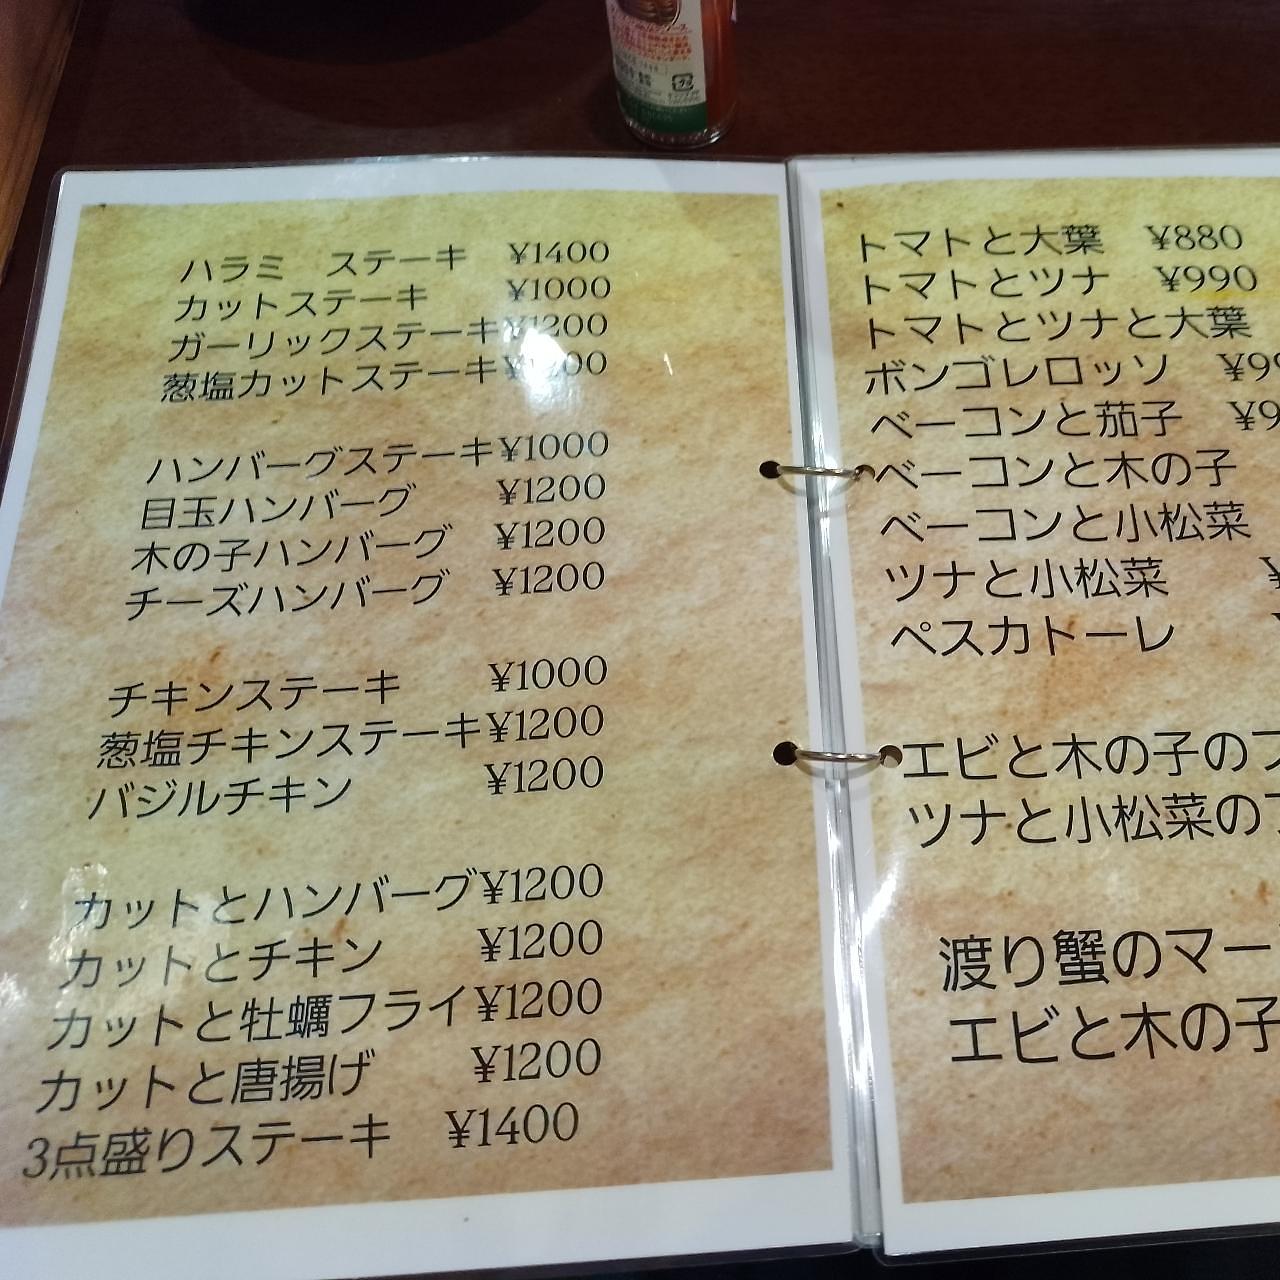 ハラミ ステーキ ¥1400
カットステーキ ¥1000
ガーリックステーキ ¥1200
葱塩カットステーキ
ハンバーグステーキ ¥1000
目玉ハンバーグ ¥1200
木の子ハンバーグ ¥1200
チーズハンバーグ ¥1200
チキンステーキ ¥1000
葱塩チキンステーキ ¥1200
バジルチキン ¥1200
カットとハンバーグ ¥1200
カットとチキン ¥1200
カットと牡蠣フライ ¥1200
カットと唐揚げ ¥1200
3点盛りステーキ ¥1400
トマトと大葉 ¥880
トマトとツナ ¥990
トマトとツナと大葉
ボンゴレロッソ
ベーコンと茄子
ベーコンと木の子
ベーコンと小松菜
ツナと小松菜
ペスカトーレ
エビと木の子の
ツナと小松菜の
渡り蟹のマー
エビと木の子